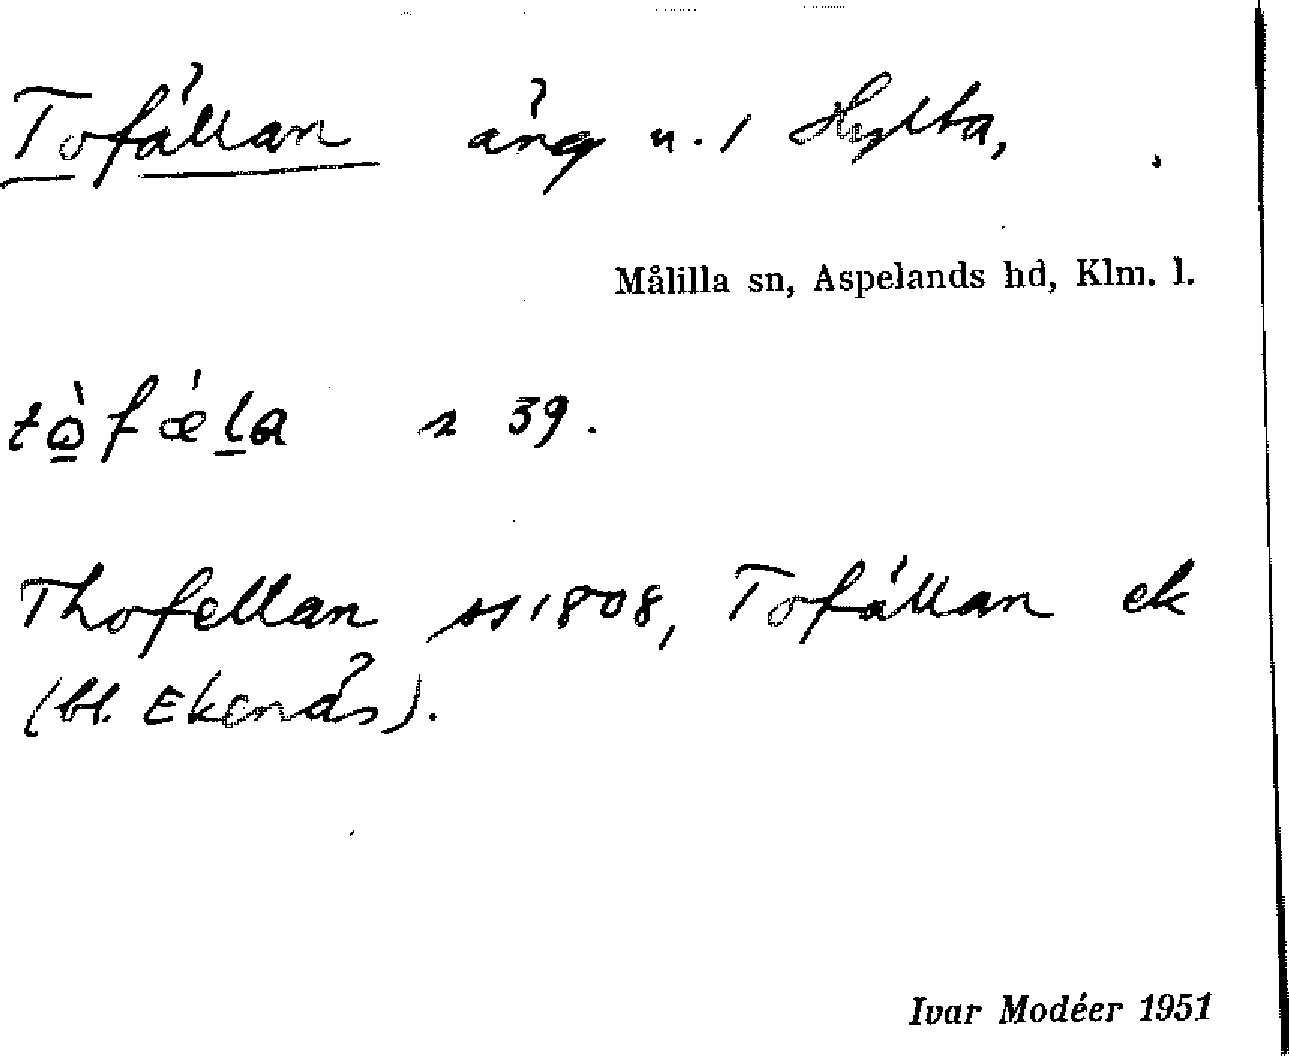 Tofällan äng n. 1 Hylta,
Målilla sn, Aspelands hd, Klm. l.
tò̠fǽl̠a s 39.
Thofellan ss 1808, Tofällan ek
(bl. Ekenäs).
Ivar Modéer 1951